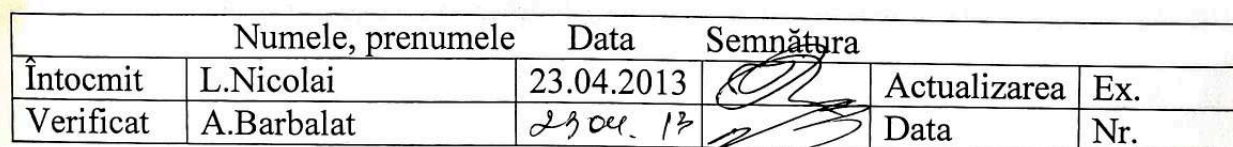 Numele, prenumele Data Semnătura
Întocmit L.Nicolai 23.04.2013 Actualizarea Ex.
Verificat A.Barbalat 23 04. 13 Data Nr.